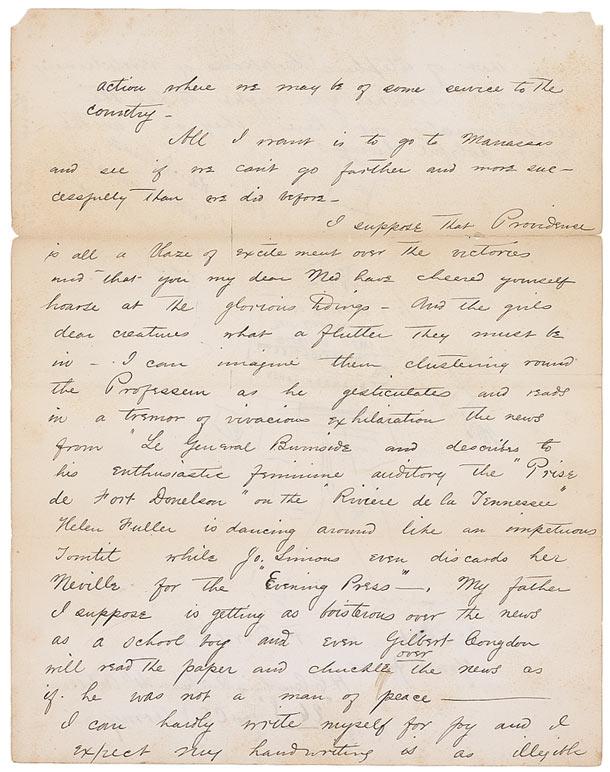 action where we may be of some service to the
country -
All I want is to go to Manassas
and see if we can't go farther and more suc-
cessfully than we did before -
I suppose that Providence
is all a blaze of excitement over the victories
and that you my dear Ned have cheered yourself
hoarse at the glorious tidings - And the girls
dear creatures what a flutter they must be
in - I can imagine them clustering round
the Professeur as he gesticulates and reads
in a tremor of vivacious exhilaration the news
from "Le General Burnside and describes to
his enthusiastic feminine auditory the "Prise
de Fort Donelson" on the "Riviere de la Tennessee"
Helen Fuller is dancing around like an impetuous
Tomtit while Jo. Simons even discards her
Neville for the "Evening Press" -. My father
I suppose is getting as boisterous over the news
as a school boy and even Gilbert Congdon
will read the paper and chuckle over the news as
if he was not a man of peace ———
I can hardly write myself for joy and I
expect my handwriting is as illegible